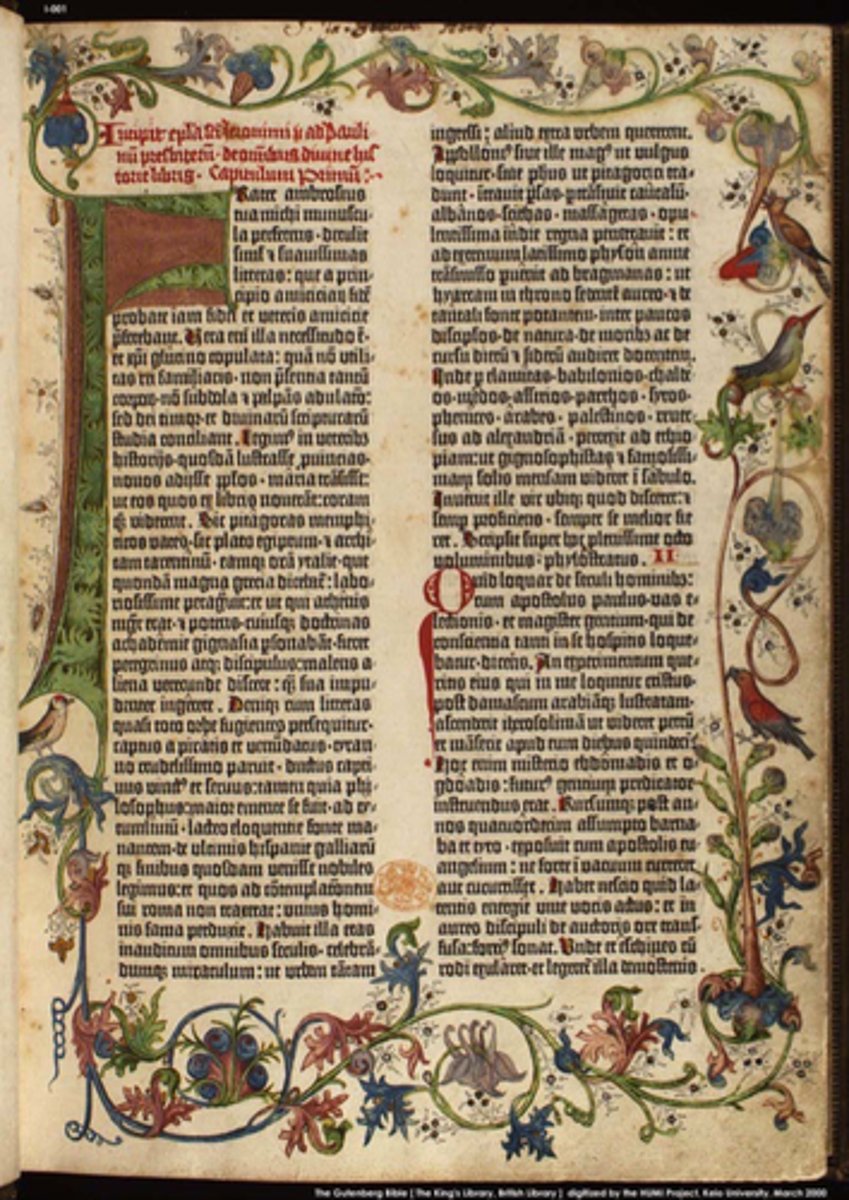 I-001
Incipit epła sc̄i Ieronimi p̄ ad Pauli-
nū presbiterū · de oīnibus diuine his-
torie libris · Capitulum Primū:
Frater ambrosius
tua michi munuscu-
la perferens · detulit
siml̄ ⁊ suauissimas
litteras: que a prin-
cipio amiciciaꝝ fidē
probate iam fidei et veteris amicicie
p̄ferebant. Uera eni illa necessitudo ē-
et xp̄i glutino copulata: quā nō utili-
tas rei familiaris · non p̄sentia tantū
corpoꝝ · nō subdola ⁊ palpās adulacō:
sed dei timor · et diuinarū scripturarū
studia conciliant. Legim⁹ in veterib⁹
historijs · quosdā lustrasse ꝓuincias ·
nouos adijsse pp̄los · maria trāsisse:
ut eos quos ex libris nouerāt: coram
qꝫ viderent. Sic pitagoras memphi-
ticos vates · sic plato egiptum · ⁊ archi-
tam tarentinū · eamqꝫ orā ytalie · que
quondā magna grecia dicebaī: labo-
riosissime peragrauit: et ut qui athenis
mgr̄ erat · ⁊ potens · cuiusqꝫ doctrinas
achademie gignasia p̄sonabāt · fieret
peregrinus atqꝫ discipulus: malens a-
liena verecunde discere: qꝫ sua impu-
denter ingerere. Deniqꝫ cum litteras
quasi toto orbe fugientes persequitur ·
captus a piratis et venūdatus · tyran-
no crudelissimo paruit · ductus capti-
uus vinct⁹ et seruus: tamen quia phi-
losophus: maior emente se fuit · ad ty-
tumliuiū · lacteo eloquentie fonte ma-
nantem · de vltimis hispanie galliarū
qꝫ finibus quosdam venisse nobiles
legimus: et quos ad cōtemplacōnem
sui roma non traxerat: unius homi-
nis fama perduxit. Habuit illa etas
inauditum omnibus seculis · celebrā-
dumqꝫ miraculum: ut urbem tātam
ingressi: aliud extra urbem quererent.
Appolloni⁹ siue ille mag⁹ ut vulgus
loquitur · siue ph̄us ut pitagorici tra-
dunt · ītrauit ꝑsas · ꝑtrāsiuit caucasū ·
albānos · scithas · massagetas · opu-
lentissima īndie regna penetrauit: et
ad extremum latissimo physon amne
trāsmisso puenit ad bragmanas: ut
hyarcam in throno sedentē aureo · ⁊ de
tantali fonte potantem · inter paucos
discipulos · de natura · de moribꝫ ac de
cursu dierū ⁊ siderū audiret docentem.
Inde ꝑ elamitas · babilonios · chalde-
os · medos · assirios · parthos · syros ·
phenices · arabes · palestinos · reuer-
sus ad alexandriā · perrexit ad ethio-
piam: ut gignosophistas ⁊ famosissi-
mam solis mensam videret ī sabulo.
Inuenit ille vir ubiqꝫ quod disceret: ⁊
semꝑ proficiens · semper se melior fie-
ret. Scripsit super hoc plenissime octo
voluminibus · phylostratus. II
Quid loquar de seculi hominibꝫ:
cum apostolus paulus · vas e-
lectionis · et magister gentium · qui de
conscientia tanti in se hospitis loque-
batur · dicens. An experimentum que-
ritis eius qui in me loquitur cristus ·
post damascum arabiāqꝫ lustratam ·
ascenderit iherosolimā ut videret petrū
et māserit apud eum diebus quindeci.
Hoc enim misterio ebdomadis et o-
gdoadis: futur⁹ gentium predicator
instruendus erat. Rursumqꝫ post an-
nos quatuordecim assumpto barna-
ba et tyto · exposuit cum apostolis eu-
angelium: ne forte ī vacuum curreret
aut cucurrisset. Habet nescio quid la-
tentis energie viue vocis actus: et in
aures discipuli de auctoris ore trans-
fusa: fortiꝰ sonat. Unde et eschines cū
rodi exularet · et legereī illa demostenis
The Gutenberg Bible | The King's Library, British Library | digitized by the HUMI Project, Keio University, March 2000